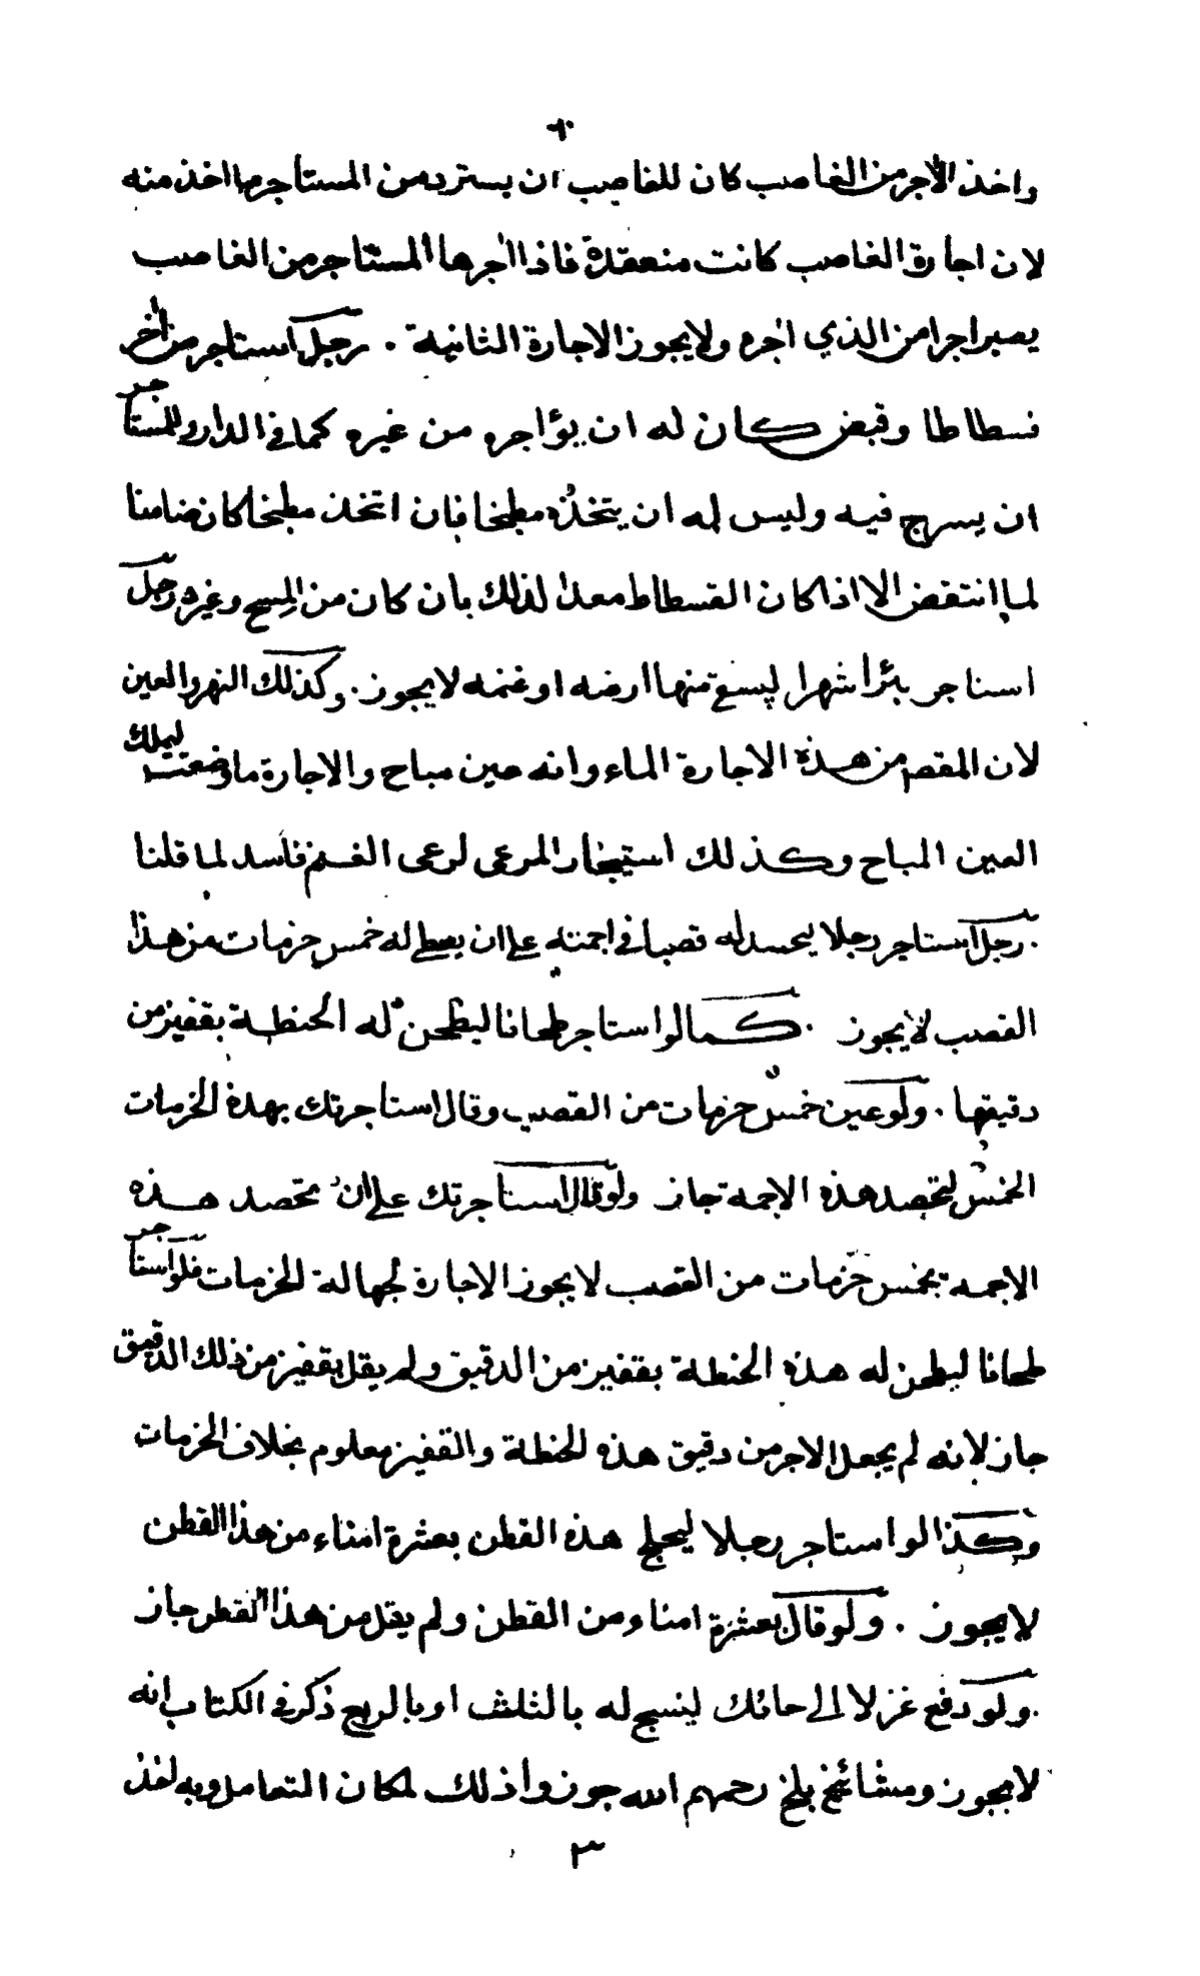 واخذ الاجر من الغاصب كان للغاصب ان يسترد من المستاجر ما اخذ منه
لان اجارة الغاصب كانت منعقدة فاذا اجرها المستاجر من الغاصب
يصير اجرا من الذي اجره ولا يجوز الاجارة الثانية . رجل استاجر من اخر
فسطاطا وقبض كان له ان يؤاجره من غيره كما في الدار وللمستاجر
ان يسرج فيه وليس له ان يتخذه مطبخا فان اتخذ مطبخا كان ضامنا
لما انتقض الا اذا كان الفسطاط معدا لذلك بان كان من المسح وغيره رجل
استاجر بئرا شهرا ليسقي منها ارضه او غنمه لا يجوز . وكذلك النهر والعين
لان المقصد من هذه الاجارة الماء وانه عين مباح والاجارة ما وضعت ليملك
العين المباح وكذلك استيجار المرعى لرعى الغنم فاسد لما قلنا
. رجل استاجر رجلا ليحصد له قصبا في اجمته على ان يعطى له خمس حزمات من هذا
القصب لا يجوز . كما لو استاجر طحانا ليطحن له الحنطة بقفيز من
دقيقها . ولو عين خمس حزمات من القصب وقال استاجرتك بهذه الحزمات
الخمس لتحصد هذه الاجمة جاز ولو قال استاجرتك على ان تحصد هذه
الاجمة بخمس حزمات من القصب لا يجوز الاجارة لجهالة الحزمات فلو استاجر
طحانا ليطحن له هذه الحنطة بقفيز من الدقيق ولم يقل بقفيز من ذلك الدقيق
جاز لانه لم يجعل الاجر من دقيق هذه الحنطة والقفيز معلوم بخلاف الحزمات
وكذا لو استاجر رجلا ليحلج هذه القطن بعشرة امناء من هذا القطن
لا يجوز . ولو قال بعشرة امناء من القطن ولم يقل من هذا القطن جاز
. ولو دفع غزلا الى حائك لينسج له بالثلث او بالربع ذكر في الكتاب انه
لا يجوز ومشائخ بلخ رحمهم الله جوزوا ذلك لمكان التعامل وبه اخذ
٣